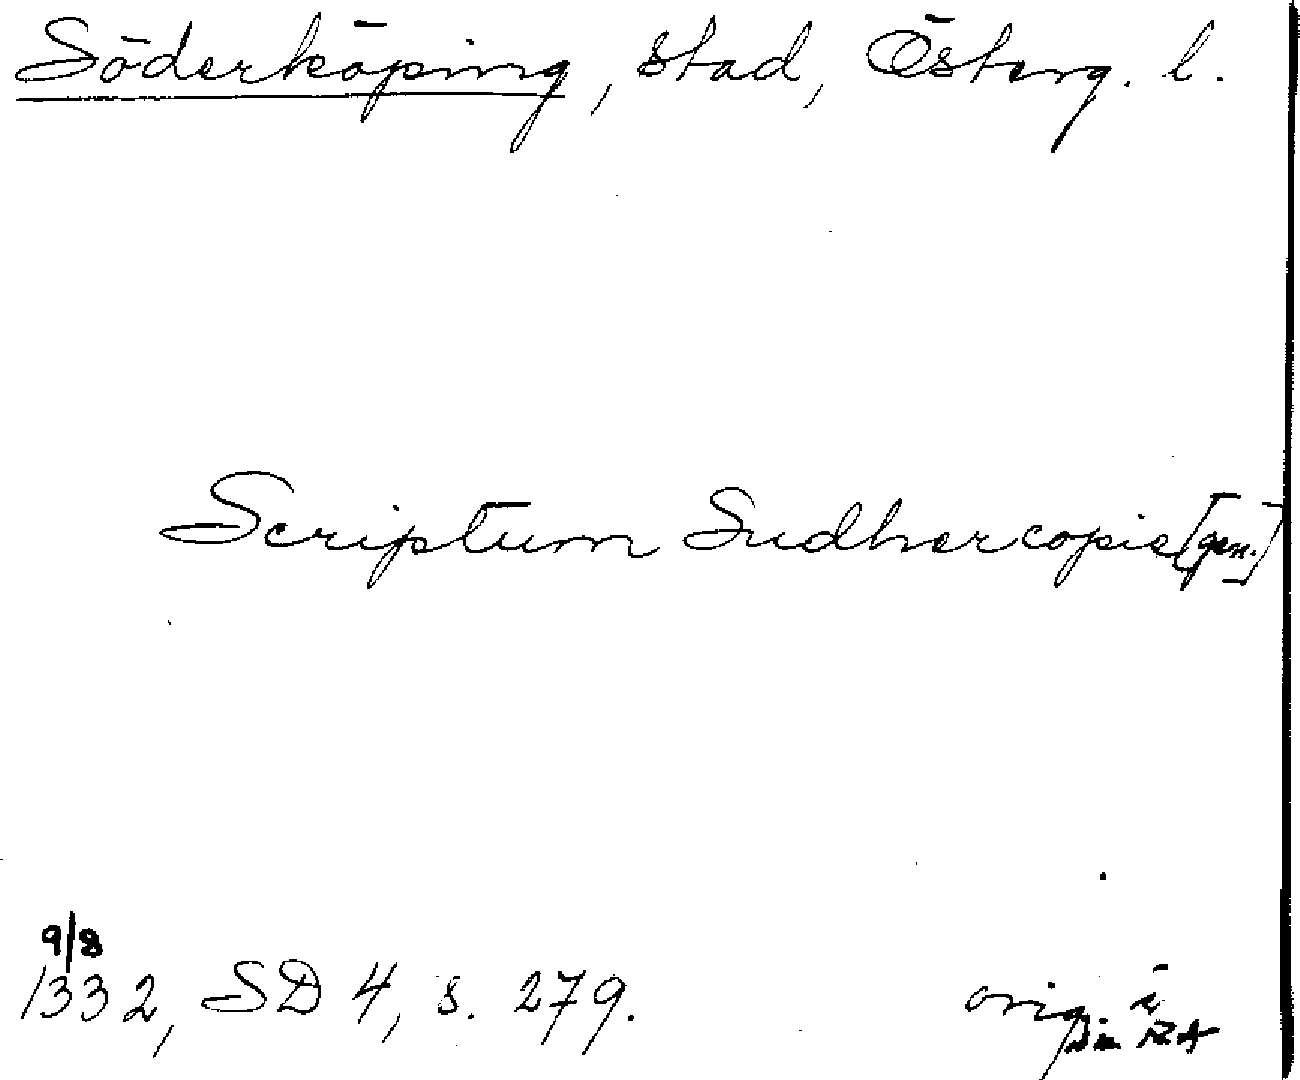 Söderköping, stad, Österg. l.
Scriptum Sudhercopie [gen.]
9/8
1332, SD 4, s. 279.
orig. i
RA